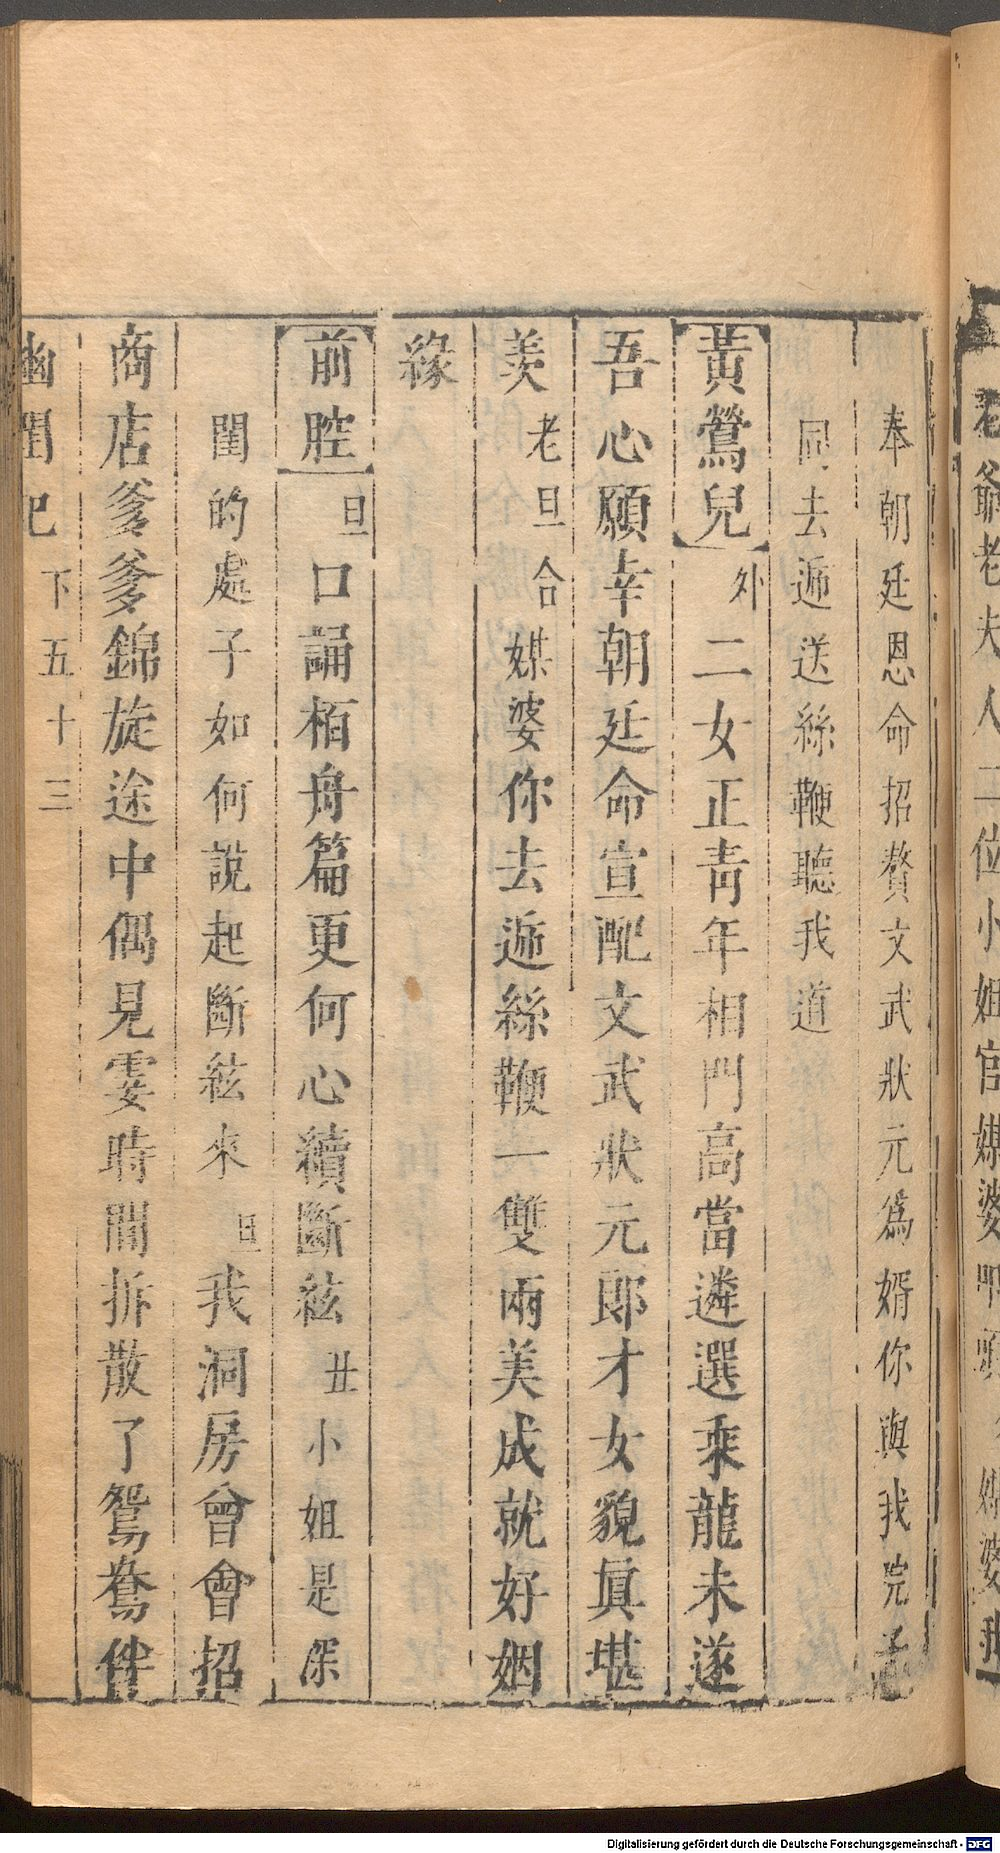 老爺老夫人二位小姐官媒婆叩頭 媒婆我
奉朝廷恩命招贅文武狀元爲婿你與我院子
同去遞送絲鞭聽我道
【黃鶯兒】外二女正靑年相門高當遴選乘龍未遂
吾心願幸朝廷命宣配文武狀元郎才女貌眞堪
羨老旦合媒婆你去遞絲鞭一雙兩美成就好姻
緣
【前腔】旦口誦栢舟篇更何心續斷絃丑小姐是深
閨的處子如何說起斷絃來旦我洞房曾會招
商店爹爹錦旋途中偶見霎時間拆散了鴛鴦伴
幽閨記 下五十三
Digitalisierung gefördert durch die Deutsche Forschungsgemeinschaft - DFG